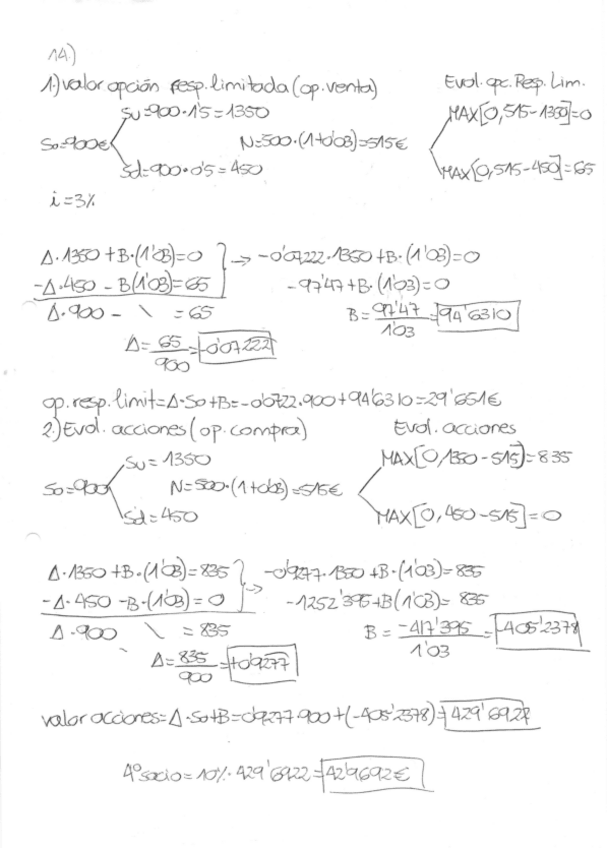 14.)
1.) valor opción resp. limitada (op. venta) Evol. opc. Resp. Lim.
Su = 900 · 1'5 = 1350 MAX[0, 515-1350] = 0
So = 900€ N = 500 · (1+0'03) = 515€
Sd = 900 · 0'5 = 450 MAX[0, 515-450] = 65
i = 3%
Δ · 1350 + B · (1'03) = 0 → -0'07222 · 1350 + B · (1'03) = 0
-Δ · 450 - B(1'03) = 65 -97'47 + B · (1'03) = 0
Δ · 900 - \ = 65 B = 97'47 / 1'03 = 94'6310
Δ = 65 / 900 = -0'07222
op. resp. limit = Δ · So + B = -0'0722 · 900 + 94'6310 = 29'651€
2.) Evol. acciones (op. compra) Evol. acciones
Su = 1350 MAX[0, 1350 - 515] = 835
So = 900 N = 500 · (1+0'03) = 515€
Sd = 450 MAX[0, 450 - 515] = 0
Δ · 1350 + B · (1'03) = 835 → -0'9277 · 1350 + B · (1'03) = 835
-Δ · 450 - B · (1'03) = 0 -1252'395 + B(1'03) = 835
Δ · 900 \ = 835 B = -417'395 / 1'03 = -405'2378
Δ = 835 / 900 = +0'9277
valor acciones = Δ · So + B = 0'9277 · 900 + (-405'2378) = 429'6922
4º socio = 10% · 429'6922 = 42'9692€